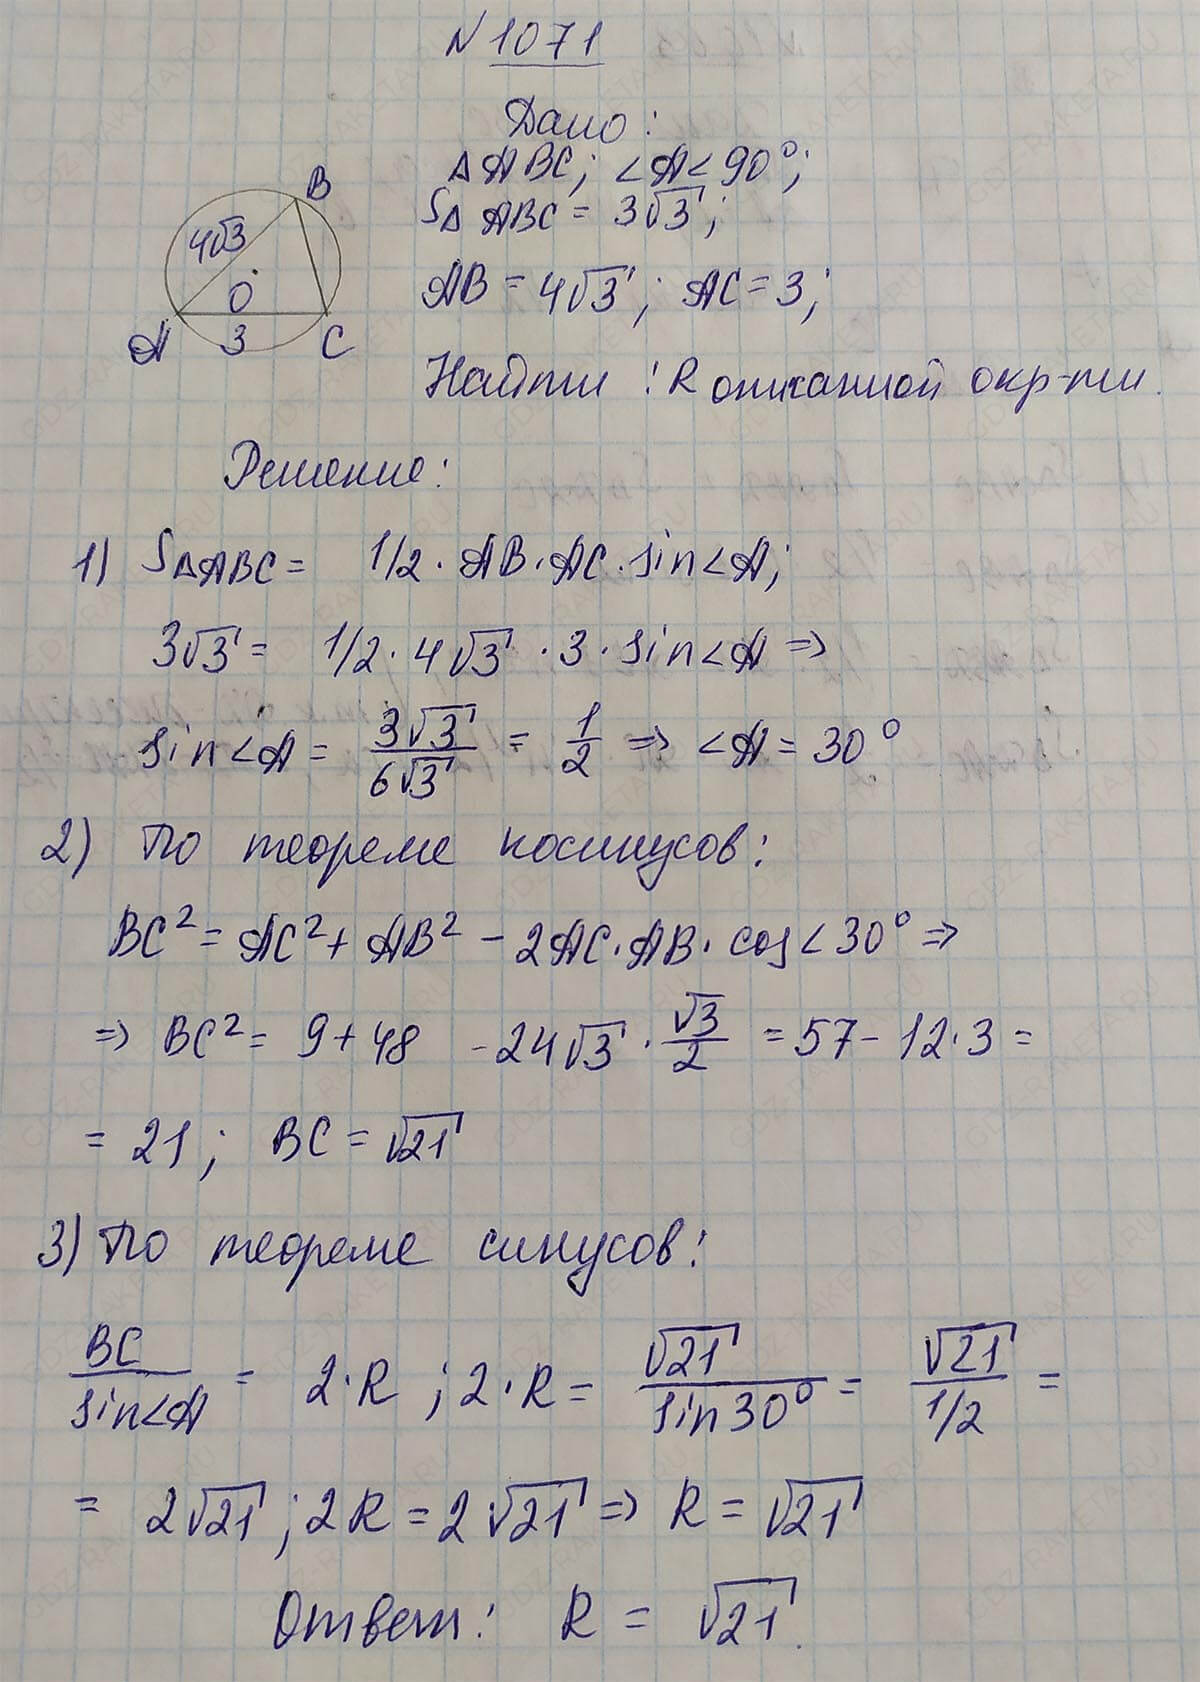 N 1071
Дано:
△ABC; ∠A<90°;
S△ABC = 3√3;
AB = 4√3; AC = 3;
Найти: R описанной окр-ти.
B
4√3
O
A 3 C
Решение:
1) S△ABC = 1/2 · AB · AC · sin∠A;
3√3 = 1/2 · 4√3 · 3 · sin∠A ⇒
sin∠A = 3√3/6√3 = 1/2 ⇒ ∠A = 30°
2) По теореме косинусов:
BC² = AC² + AB² - 2AC·AB· cos∠30° ⇒
⇒ BC² = 9 + 48 - 24√3 · √3/2 = 57 - 12·3 =
= 21; BC = √21
3) По теореме синусов:
BC/sin∠A = 2·R; 2·R = √21/sin30° = √21/1/2 =
= 2√21; 2R = 2√21 ⇒ R = √21
Ответ: R = √21.